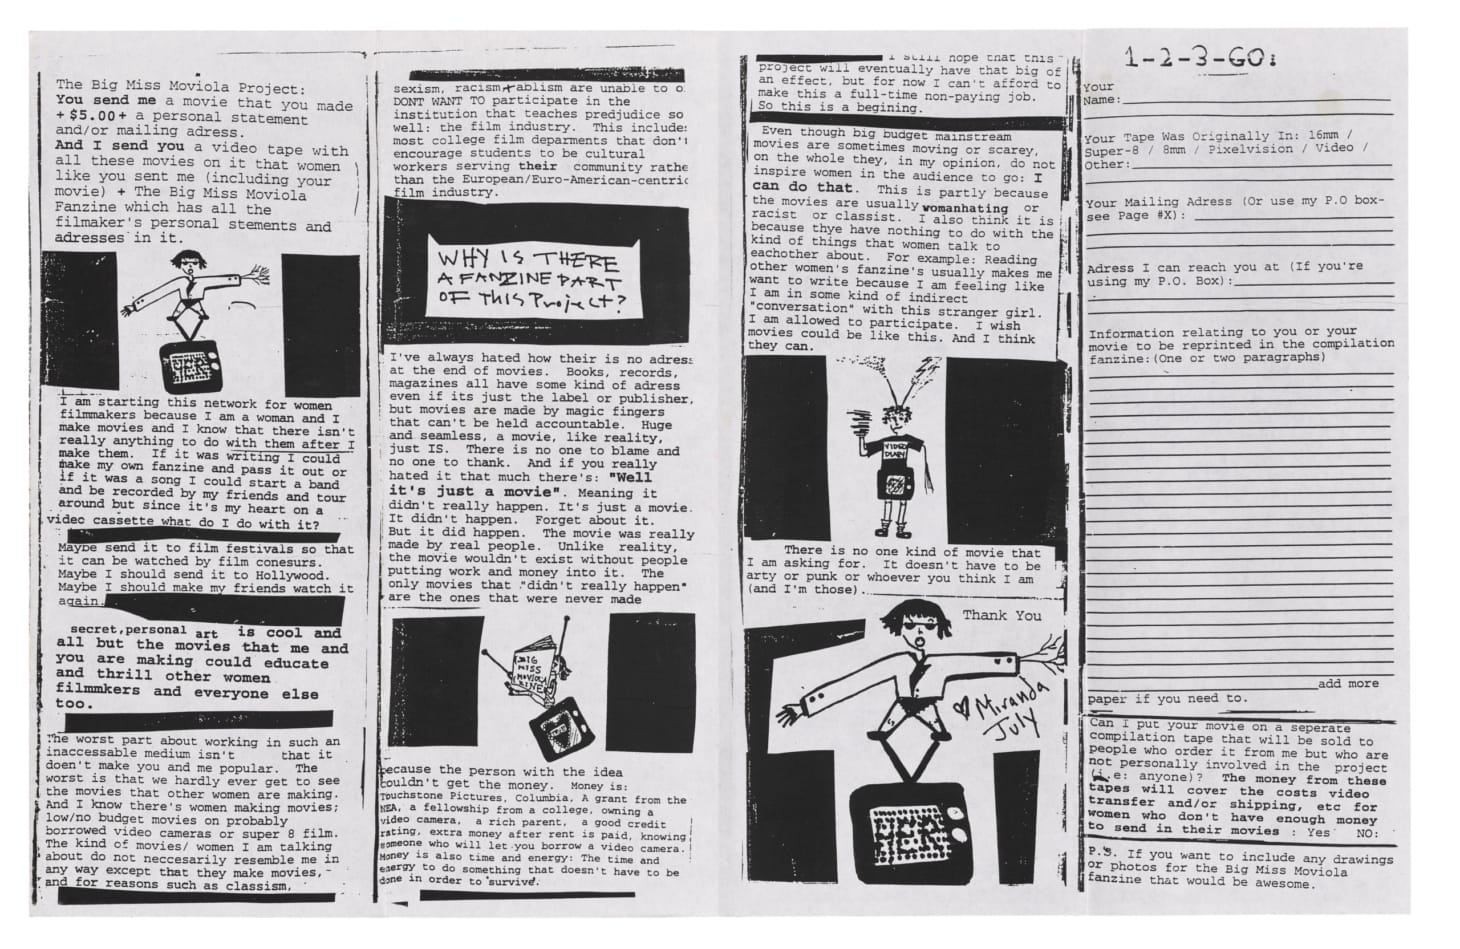 The Big Miss Moviola Project:
You send me a movie that you made
+ $5.00+ a personal statement
and/or mailing adress.
And I send you a video tape with
all these movies on it that women
like you sent me (including your
movie) + The Big Miss Moviola
Fanzine which has all the
filmaker's personal stements and
adresses in it.
PER
I am starting this network for women
filmmakers because I am a woman and I
make movies and I know that there isn't
really anything to do with them after I
make them. If it was writing I could
make my own fanzine and pass it out or
if it was a song I could start a band
and be recorded by my friends and tour
around but since it's my heart on a
video cassette what do I do with it?
Maybe send it to film festivals so that
it can be watched by film conesurs.
Maybe I should send it to Hollywood.
Maybe I should make my friends watch it
again.
secret,personal art is cool and
all but the movies that me and
you are making could educate
and thrill other women
filmmkers and everyone else
too.
The worst part about working in such an
inaccessable medium isn't that it
doen't make you and me popular. The
worst is that we hardly ever get to see
the movies that other women are making.
And I know there's women making movies;
low/no budget movies on probably
borrowed video cameras or super 8 film.
The kind of movies/ women I am talking
about do not neccesarily resemble me in
any way except that they make movies,
and for reasons such as classism,
sexism, racism+ablism are unable to o
DONT WANT TO participate in the
institution that teaches predjudice so
well: the film industry. This include:
most college film deparments that don't
encourage students to be cultural
workers serving their community rathe
than the European/Euro-American-centric
film industry.
WHY IS THERE
A FANZINE PART
OF THIS Project?
I've always hated how their is no adress
at the end of movies. Books, records,
magazines all have some kind of adress
even if its just the label or publisher,
but movies are made by magic fingers
that can't be held accountable. Huge
and seamless, a movie, like reality,
just IS. There is no one to blame and
no one to thank. And if you really
hated it that much there's: "Well
it's just a movie". Meaning it
didn't really happen. It's just a movie.
It didn't happen. Forget about it.
But it did happen. The movie was really
made by real people. Unlike reality,
the movie wouldn't exist without people
putting work and money into it. The
only movies that "didn't really happen"
are the ones that were never made
BIG
MISS
MOVIOLA
ZINE
because the person with the idea
couldn't get the money. Money is:
Touchstone Pictures, Columbia, A grant from the
NEA, a fellowship from a college, owning a
video camera, a rich parent, a good credit
rating, extra money after rent is paid, knowing
someone who will let you borrow a video camera.
Money is also time and energy: The time and
energy to do something that doesn't have to be
done in order to 'survive'.
I still hope that this
project will eventually have that big of
an effect, but for now I can't afford to
make this a full-time non-paying job.
So this is a begining.
Even though big budget mainstream
movies are sometimes moving or scarey,
on the whole they, in my opinion, do not
inspire women in the audience to go: I
can do that. This is partly because
the movies are usually womanhating or
racist or classist. I also think it is
because thye have nothing to do with the
kind of things that women talk to
eachother about. For example: Reading
other women's fanzine's usually makes me
want to write because I am feeling like
I am in some kind of indirect
"conversation" with this stranger girl.
I am allowed to participate. I wish
movies could be like this. And I think
they can.
VIDEO
DIARY
There is no one kind of movie that
I am asking for. It doesn't have to be
arty or punk or whoever you think I am
(and I'm those).
Thank You
♡ Miranda
July
PER
1-2-3-GO:
Your
Name:
Your Tape Was Originally In: 16mm /
Super-8 / 8mm / Pixelvision / Video /
Other:
Your Mailing Adress (Or use my P.O box-
see Page #X):
Adress I can reach you at (If you're
using my P.O. Box):
Information relating to you or your
movie to be reprinted in the compilation
fanzine:(One or two paragraphs)
add more
paper if you need to.
Can I put your movie on a seperate
compilation tape that will be sold to
people who order it from me but who are
not personally involved in the project
(i.e: anyone)? The money from these
tapes will cover the costs video
transfer and/or shipping, etc for
women who don't have enough money
to send in their movies : Yes NO:
P.S. If you want to include any drawings
or photos for the Big Miss Moviola
fanzine that would be awesome.